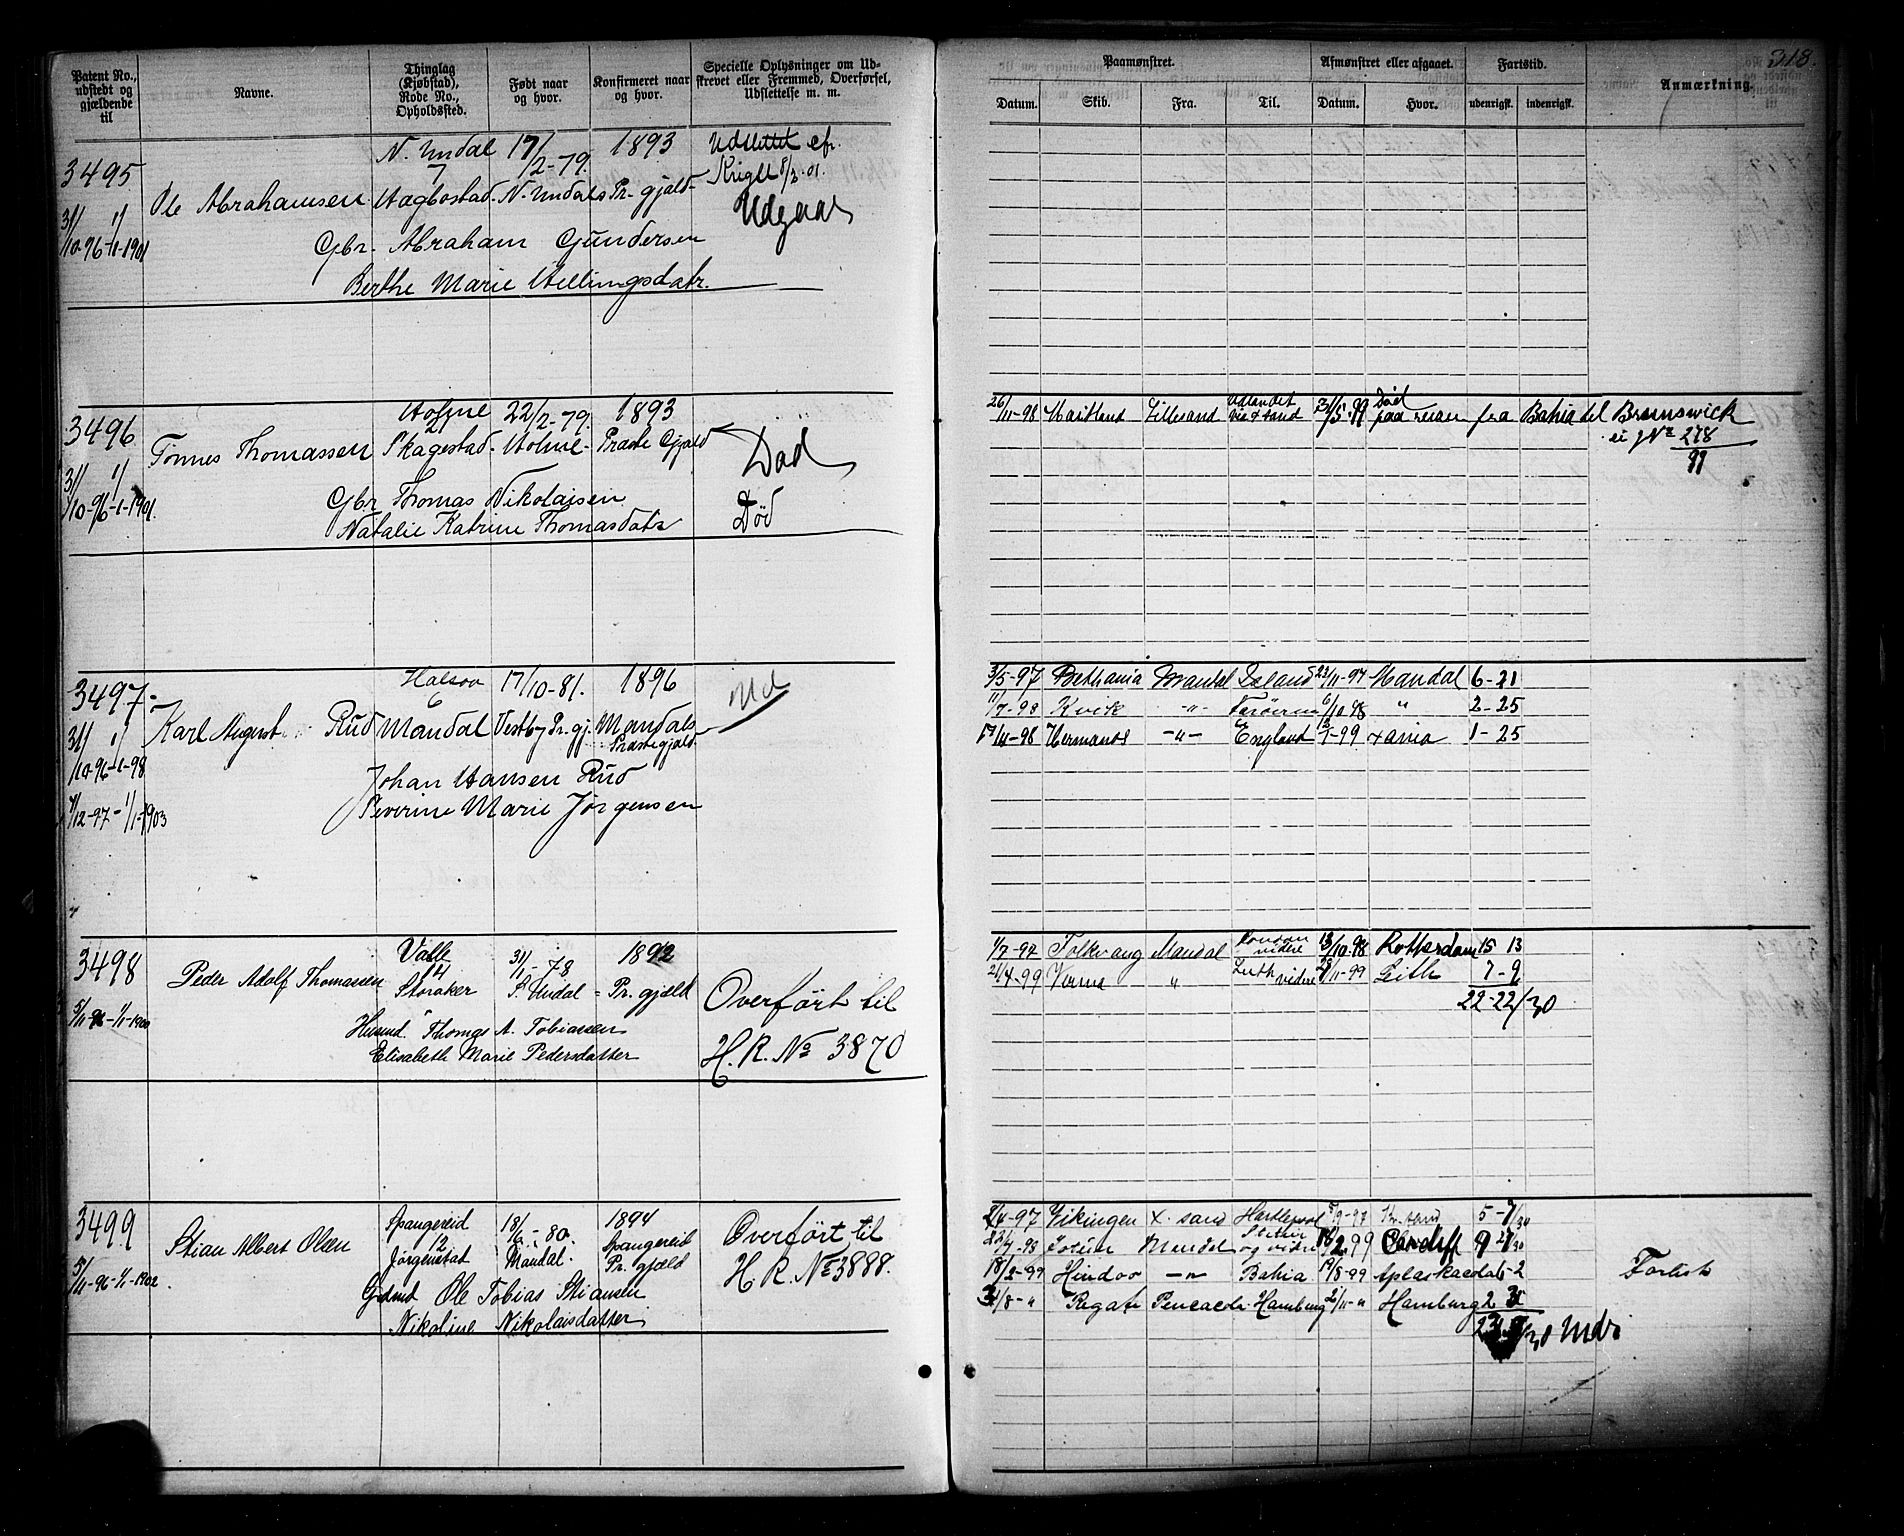 318.
Patent No., udstedt og gjældende til
Navne.
Thinglag (Kjøbstad), Rode No., Opholdssted.
Født naar og hvor.
Konfirmeret naar og hvor.
Specielle Oplysninger om Udskrevet eller Fremmed, Overførsel, Udslettelse m. m.
Paamønstret.
Afmønstret eller afgaaet.
Fartstid.
Anmærkning.
Datum. Skib. Fra. Til. Datum. Hvor. udenrigsk. indenrigsk.
N. Undal 17/2-79. 1893 Udslettet efr.
3495 7
Ole Abrahamsen Haegbostad. N. Undals Pr. gjæld
Udgaar
31/10-96-1/1-1901
Gbr. Abraham Gundersen
Berthe Marie Hellingsdatr.
3496 Holme 22/2-79. 1893
2
Tønnes Thomassen Skagestad. Holme- Præste Gjæld
Død
31/10-96-1/1-1901.
Gbr Thomas Nikolaisen
Natalie Katrine Thomasdatr
Død
26/11-98 Maitland Lillesand Udlandet Død
paa reisen fra Bahia del Brunswick
No 278
99
3497 Halsaa 17/10-81. 1896
6
Karl August Rud Mandal Vestby Pr. gj. Mandals Præstegjæld
Ud
31/10-96-1/1-98
Johan Hansen Rud
Severine Marie Jørgensen
/12-97-1/1-1903
3/5-97 Bethania Mandal Island 23/11-97 Mandal 6-21
11/7-98 Kvik -"- Færøerne 6/10-98 " 2-25
/11-98 Hermanos -"- England /1-99 Xania 1-25
3498 Valle 31/1-78 1892
14
Peder Adolf Thomassen Storaker S. Undal = Pr. gjæld
5/11-96-1/1-1900
Husmd. Thomas A. Tobiassen
Elisabeth Marie Pedersdatter
Overført til
H. R. No 3870
1/7-97 Folkvang Mandal London videre 13/10-98 Rotterdam 15 13
21/4-99 Verma " Leith videre /11-99 Leith 7-9
22-22/30
3499 Spangereid 18/6-80. 1894 Overført til
12
Stian Albert Olsen Jørgenstad Mandal. Spangereid Pr. gjæld
H. R. No 3888.
5/11-96-1/1-1902
Gdmd Ole Tobias Stiansen
Nikoline Nikolaisdatter
2/4-97 Vikingen X.sand Hartlepool /9-97 Kr.sand 5-
/7-98 Mandal og videre /2 99 Cardiff
18/2-99 Hindoo -"- Bahia 19/8-99
/8-" Regate Pencacola Hamburg 2/11-" Hamburg 2
/30 Mdr
Fortsk